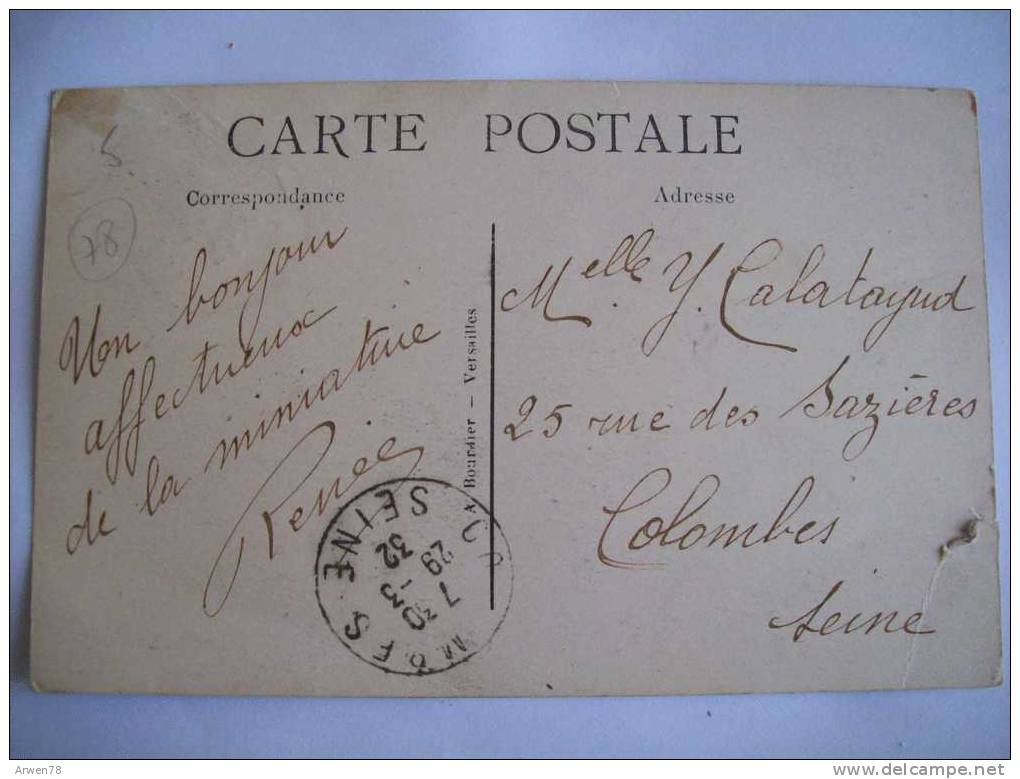 CARTE POSTALE
Correspondance
Adresse
5
78
Un bonjour
affectueux
de la miniature
Renée
Boursier – Versailles
Melle Y. Calatayud
25 rue des Sazières
Colombes
Seine
SEINE
7 30
29 -3
32
Arwen78
www.delcampe.net